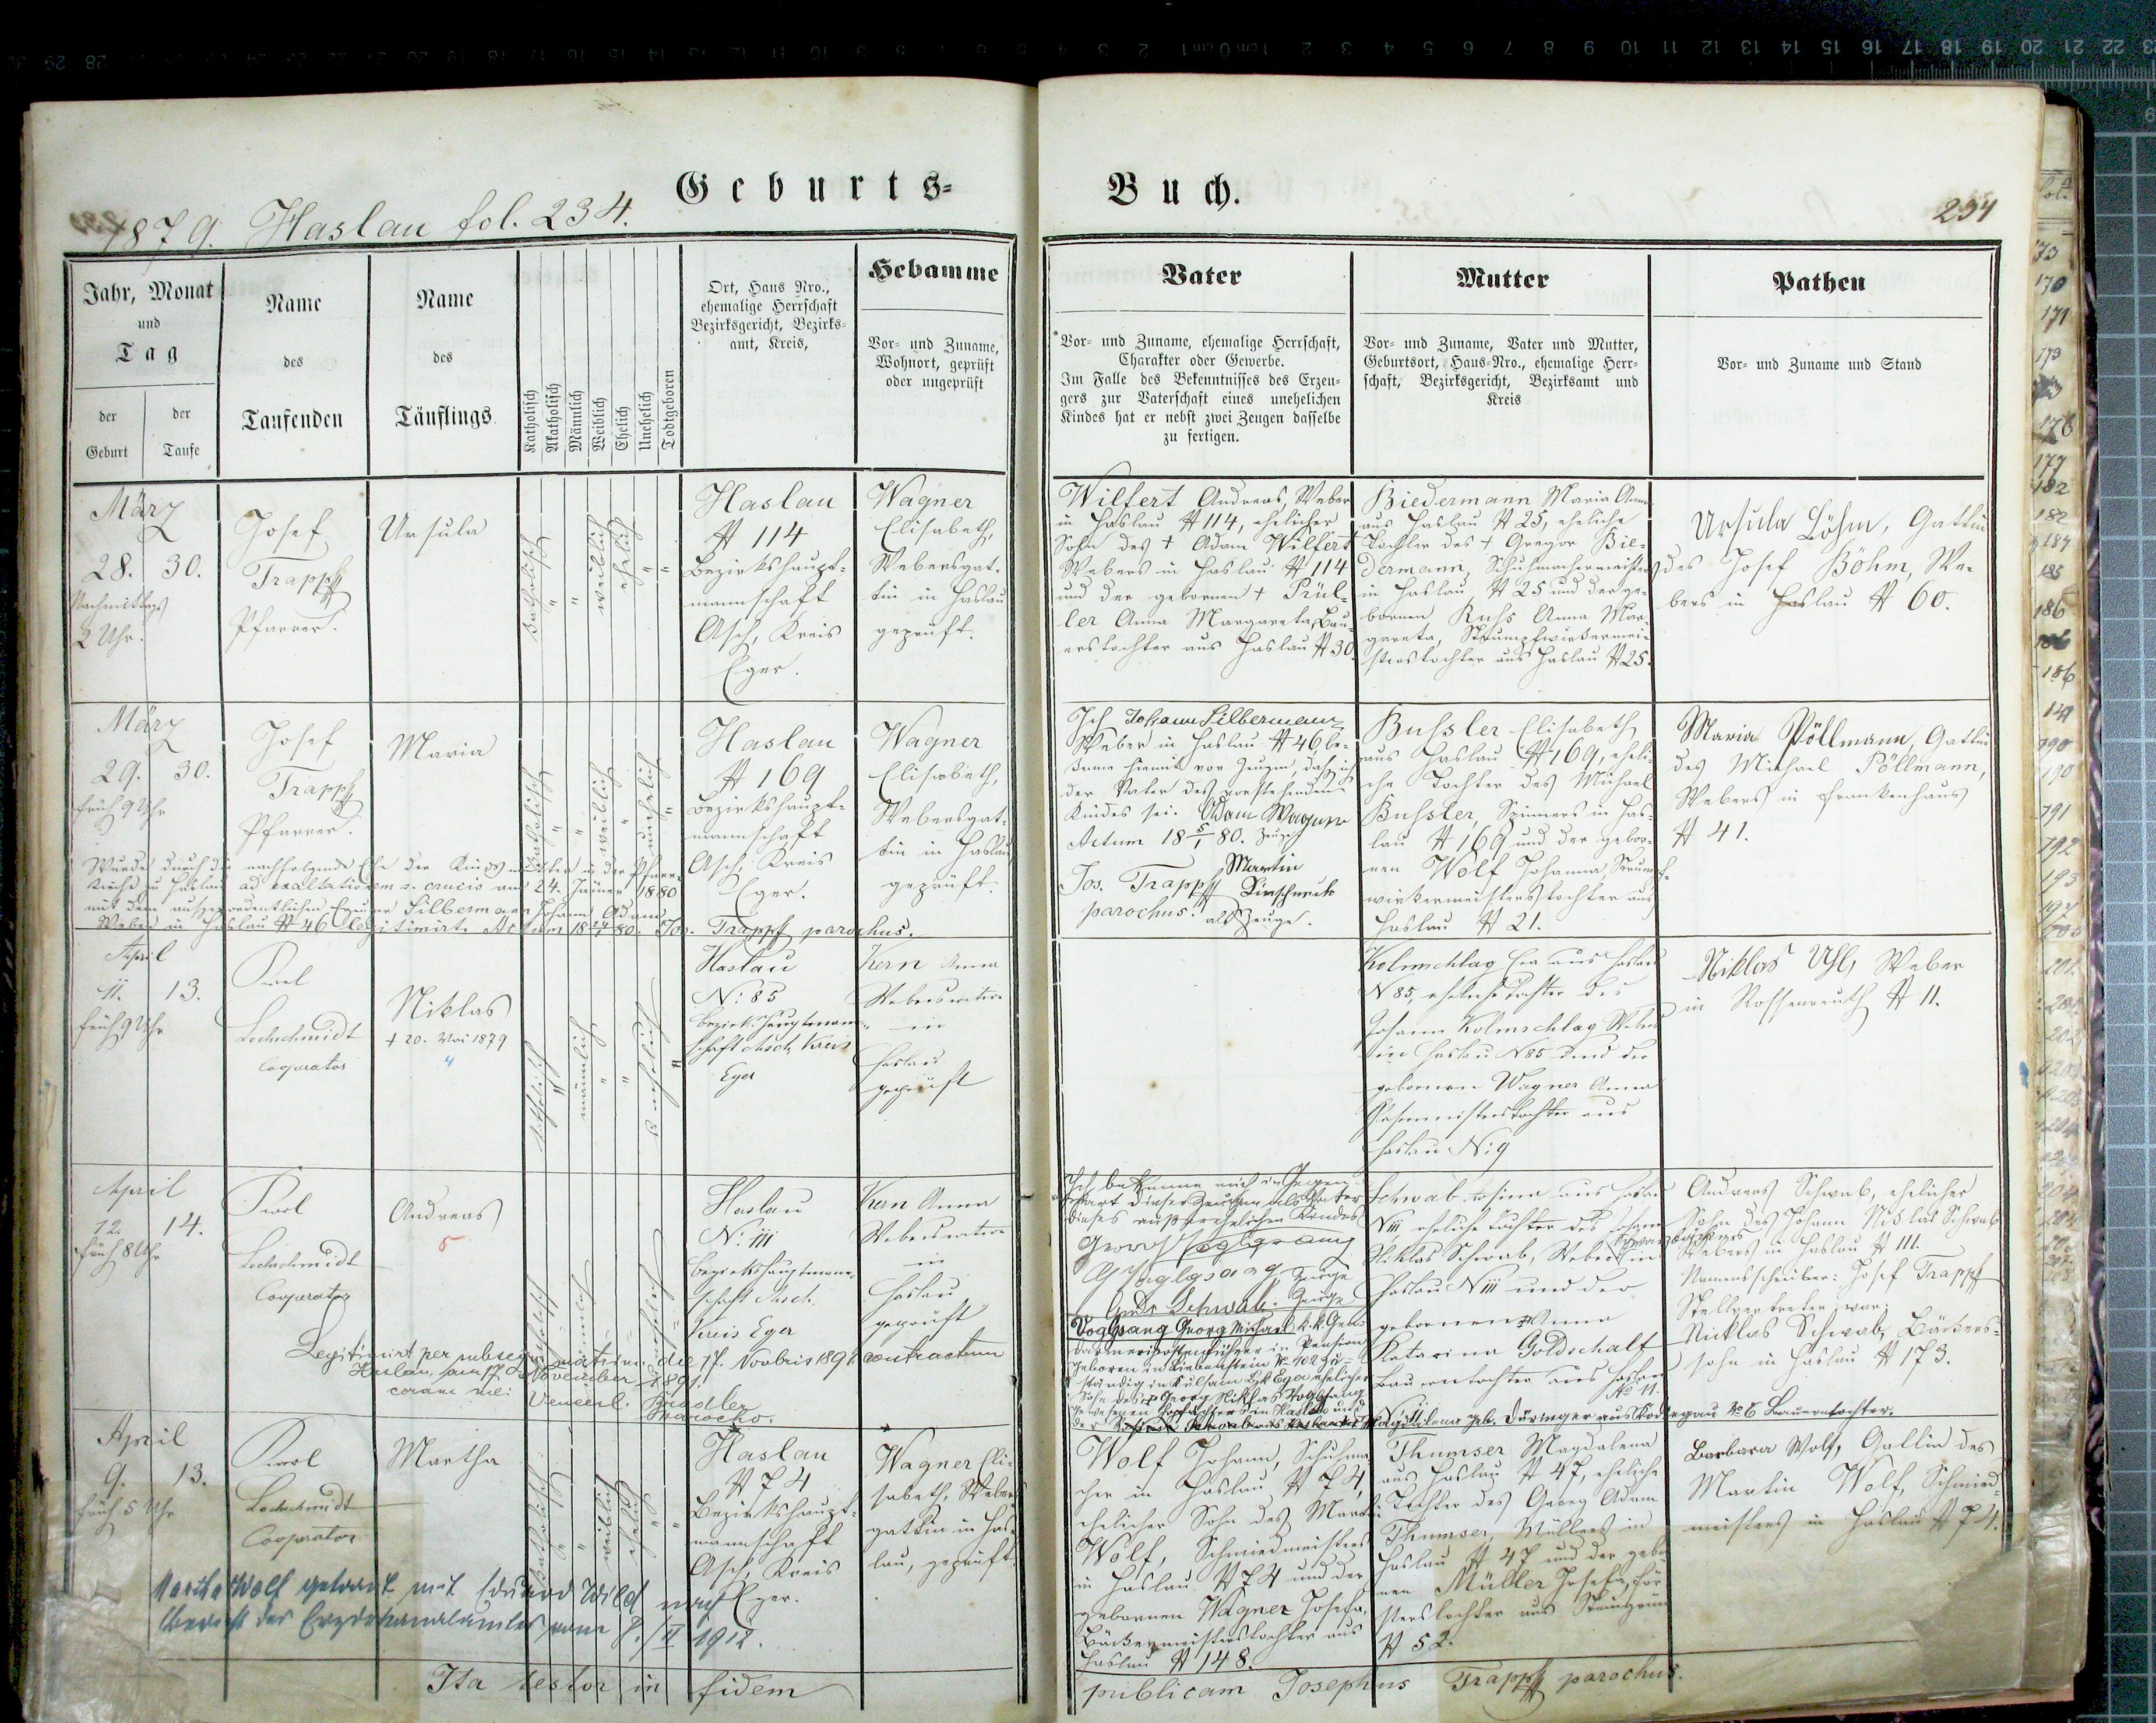 Geburts-
Buch.
1879. Haslau fol. 234.
234
Jahr, Monat
und
Tag
der
Geburt
der
Taufe
Name
des
Taufenden
Name
des
Täuflings
Katholisch
Akatholisch
Männlich
Weiblich
Ehelich
Unehelich
Todtgeboren
Ort, Haus Nro.,
ehemalige Herrschaft
Bezirksgericht, Bezirks-
amt, Kreis,
Hebamme
Vor- und Zuname,
Wohnort, geprüft
oder ungeprüft
Vater
Vor- und Zuname, ehemalige Herrschaft,
Charakter oder Gewerbe.
Im Falle des Bekenntnisses des Erzeu-
gers zur Vaterschaft eines unehelichen
Kindes hat er nebst zwei Zeugen dasselbe
zu fertigen.
Mutter
Vor- und Zuname, Vater und Mutter,
Geburtsort, Haus-Nro., ehemalige Herr-
schaft, Bezirksgericht, Bezirksamt und
Kreis
Pathen
Vor- und Zuname und Stand
März
28. 30.
Nachmittags
2 Uhr.
Josef
Trapp
Pfarrer.
Ursula
katholisch
"
"
weiblich
ehelich
"
"
Haslau
№ 114
Bezirkshaupt-
mannschaft
Asch, Kreis
Eger.
Wagner
Elisabeth,
Webersgat-
tin in Haslau
geprüft.
Wilfert Andreas, Weber
in Haslau № 114, ehelicher
Sohn des † Adam Wilfert
Webers in Haslau № 114
und der gebornen † Prül-
ler Anna Margareta, Bau-
erstochter aus Haslau № 30.
Biedermann Maria Anna
aus Haslau № 25, eheliche
Tochter des † Gregor Bie-
dermann, Schuhmachermeisters
in Haslau № 25 und der ge-
bornen Kuhs Anna Mar-
gareta, Strumpfwirkermei-
sterstochter aus Haslau № 25.
Ursula Böhm, Gattin
des Josef Böhm, We-
bers in Haslau № 60.
März
29. 30.
früh 9 Uhr
Josef
Trapp
Pfarrer.
Maria
katholisch
"
"
weiblich
"
unehelich
"
Haslau
№ 169
Bezirkshaupt-
mannschaft
Asch, Kreis
Eger.
Wagner
Elisabeth,
Webersgat-
tin in Haslau
geprüft.
Ich Johann Silbermann
Weber in Haslau № 46, be-
kenne hiemit vor Zeugen, daß ich
der Vater des vorstehenden
Kindes sei. Adam Wagner
Actum 18 5/1 80. Zeuge
Martin
Jos. Trapp Kirschneck
parochus. als Zeuge.
Bußler Elisabeth
aus Haslau № 169, eheli-
che Tochter des Michael
Bußler, Spinners in Has-
lau № 169 und der gebor-
nen Wolf Johanna, Strumpf-
wirkermeisterstochter aus
Haslau № 21.
Maria Pöllmann, Gattin
des Michael Pöllmann,
Webers in Frankenhaus
№ 41.
Wurde durch die nachfolgende Ehe der Kindesmutter in der Pfarr-
kirche zu Haslau ad exaltationem s. crucis am 24. Jäner 1880
mit dem außerordentlichen Erzeuger Silbermann Johann Adam,
Weber in Haslau № 46 legitimirt. Actum 18 24/1 80. Jos. Trapp parochus.
April
11. 13.
früh 9 Uhr
Karl
Lochschmidt
Cooperator
Niklas
† 20. Mai 1879
katholisch
"
männlich
"
"
unehelich
"
Haslau
N: 85
Bezirkshauptmann-
schaft Asch, Kreis
Eger
Kern Anna
in
Haslau
geprüft
Kolmschlag Eva aus Haslau
N 85, eheliche Tochter des
Johann Kolmschlag Webers
in Haslau N 85 und der
gebornen Wagner Anna
aus
Haslau N: 9
Niklas Uhl, Weber
in Rossenreuth № 11.
April
12. 14.
früh 8 Uhr
Karl
Lochschmidt
Cooperator
Andreas
katholisch
männlich
unehelich
Haslau
N: 111
Bezirkshauptmann-
schaft Asch.
Kreis Eger
Kern Anna
in
Haslau
geprüft
Ich bekenne mich in Gegen-
wart dieser Zeugen als Vater
dieses außerehelichen Kindes
Georg Voglgsang
Zeuge
Andr Schwab. Zeuge
Voglsang Georg Michael k. k. Gen-
darmeriepostenführer in Pension
geboren in Liebenstein № 102 zu-
ständig in Kulsam Bzk Eger ehelicher
Sohn des † Georg Niklas Voglsang
gewesenen in Haslau und
der Magdalena geb. Düringer aus Rodesgau № 6 Bauerntochter.
Schwab Rosina aus Haslau
N 111, eheliche Tochter des Johann
Niklas Schwab, Webers in
Haslau N 111 und der
gebornen Anna
Katarina Goldschalt
Bauerntochter aus Haslau
No 11.
Andreas Schwab, ehelicher
Sohn des Johann Niklas Schwab
Webers in Haslau № 111.
Namensschreiber: Josef Trapp
Stellvertreter war:
Nicklas Schwab, Bäckers-
sohn in Haslau № 173.
Legitimirt per subseq. matrim. die 17. Novbris 1891 contractum
Haslau, am 17. November 1891.
coram me: Vencesl. Hradler
Parocho.
April
9. 13.
früh 5 Uhr
Karl
Lochschmidt
Cooperator
Martha
katholisch
"
"
weiblich
ehelich
"
"
Haslau
№ 74
Bezirkshaupt-
mannschaft
Asch, Kreis
Eger.
Wagner Eli-
sabeth, Webers-
gattin in Has-
lau, geprüft.
Wolf Johann, Schuhma-
cher in Haslau № 74,
ehelicher Sohn des Martin
Wolf, Schmiedmeisters
in Haslau № 74 und der
gebornen Wagner Josefa,
Bäckermeisterstochter aus
Haslau № 148.
Thumser Magdalena
aus Haslau № 47, eheliche
Tochter des Georg Adam
Thumser, Müllers in
Haslau № 47 und der gebor-
nen Müller Josefa, För-
sterstochter aus Steingrün
№ 52.
Barbara Wolf, Gattin des
Martin Wolf, Schmied-
meisters in Haslau № 74.
Martha Wolf getraut mit Eduard Wild nach
Bericht des Erzdekanalamtes vom 8./II 1912.
Ita testor in fidem
publicam Josephus Trapp parochus.